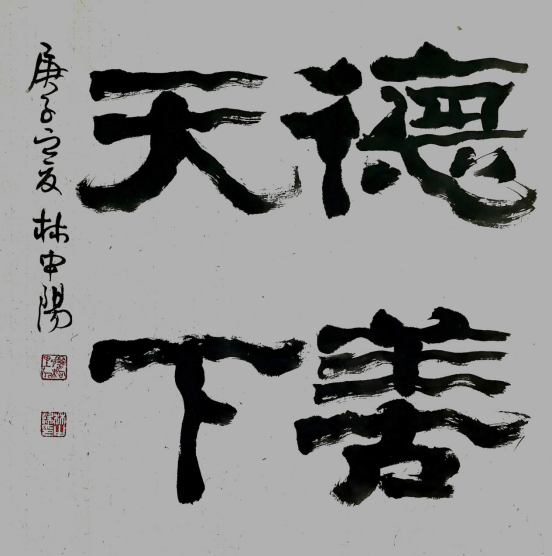 德善
天下
庚子之夏 林中陽